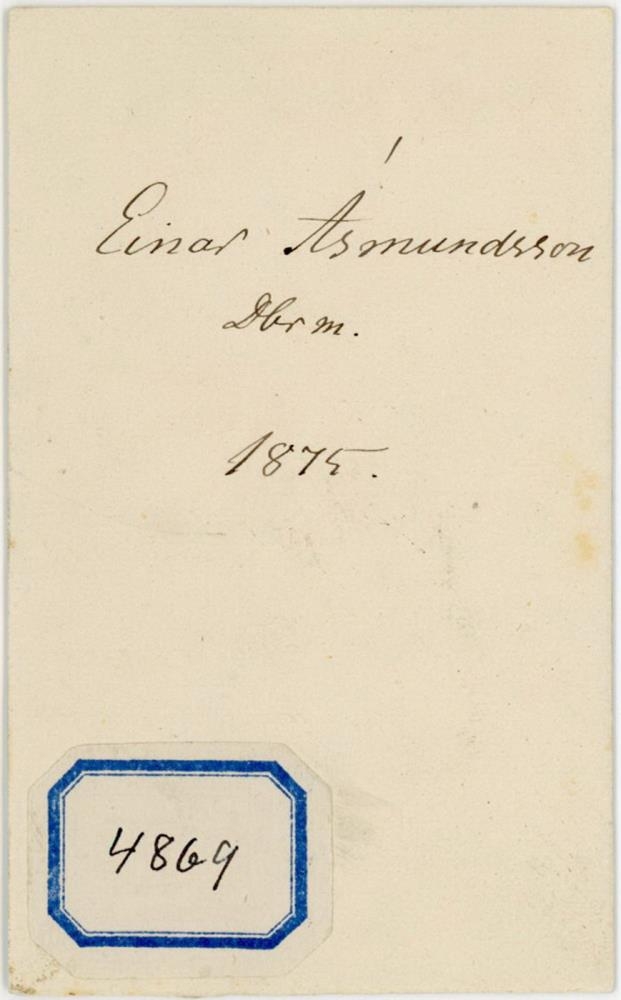 Einar Ásmundsson
Dbrm.
1875.
4869